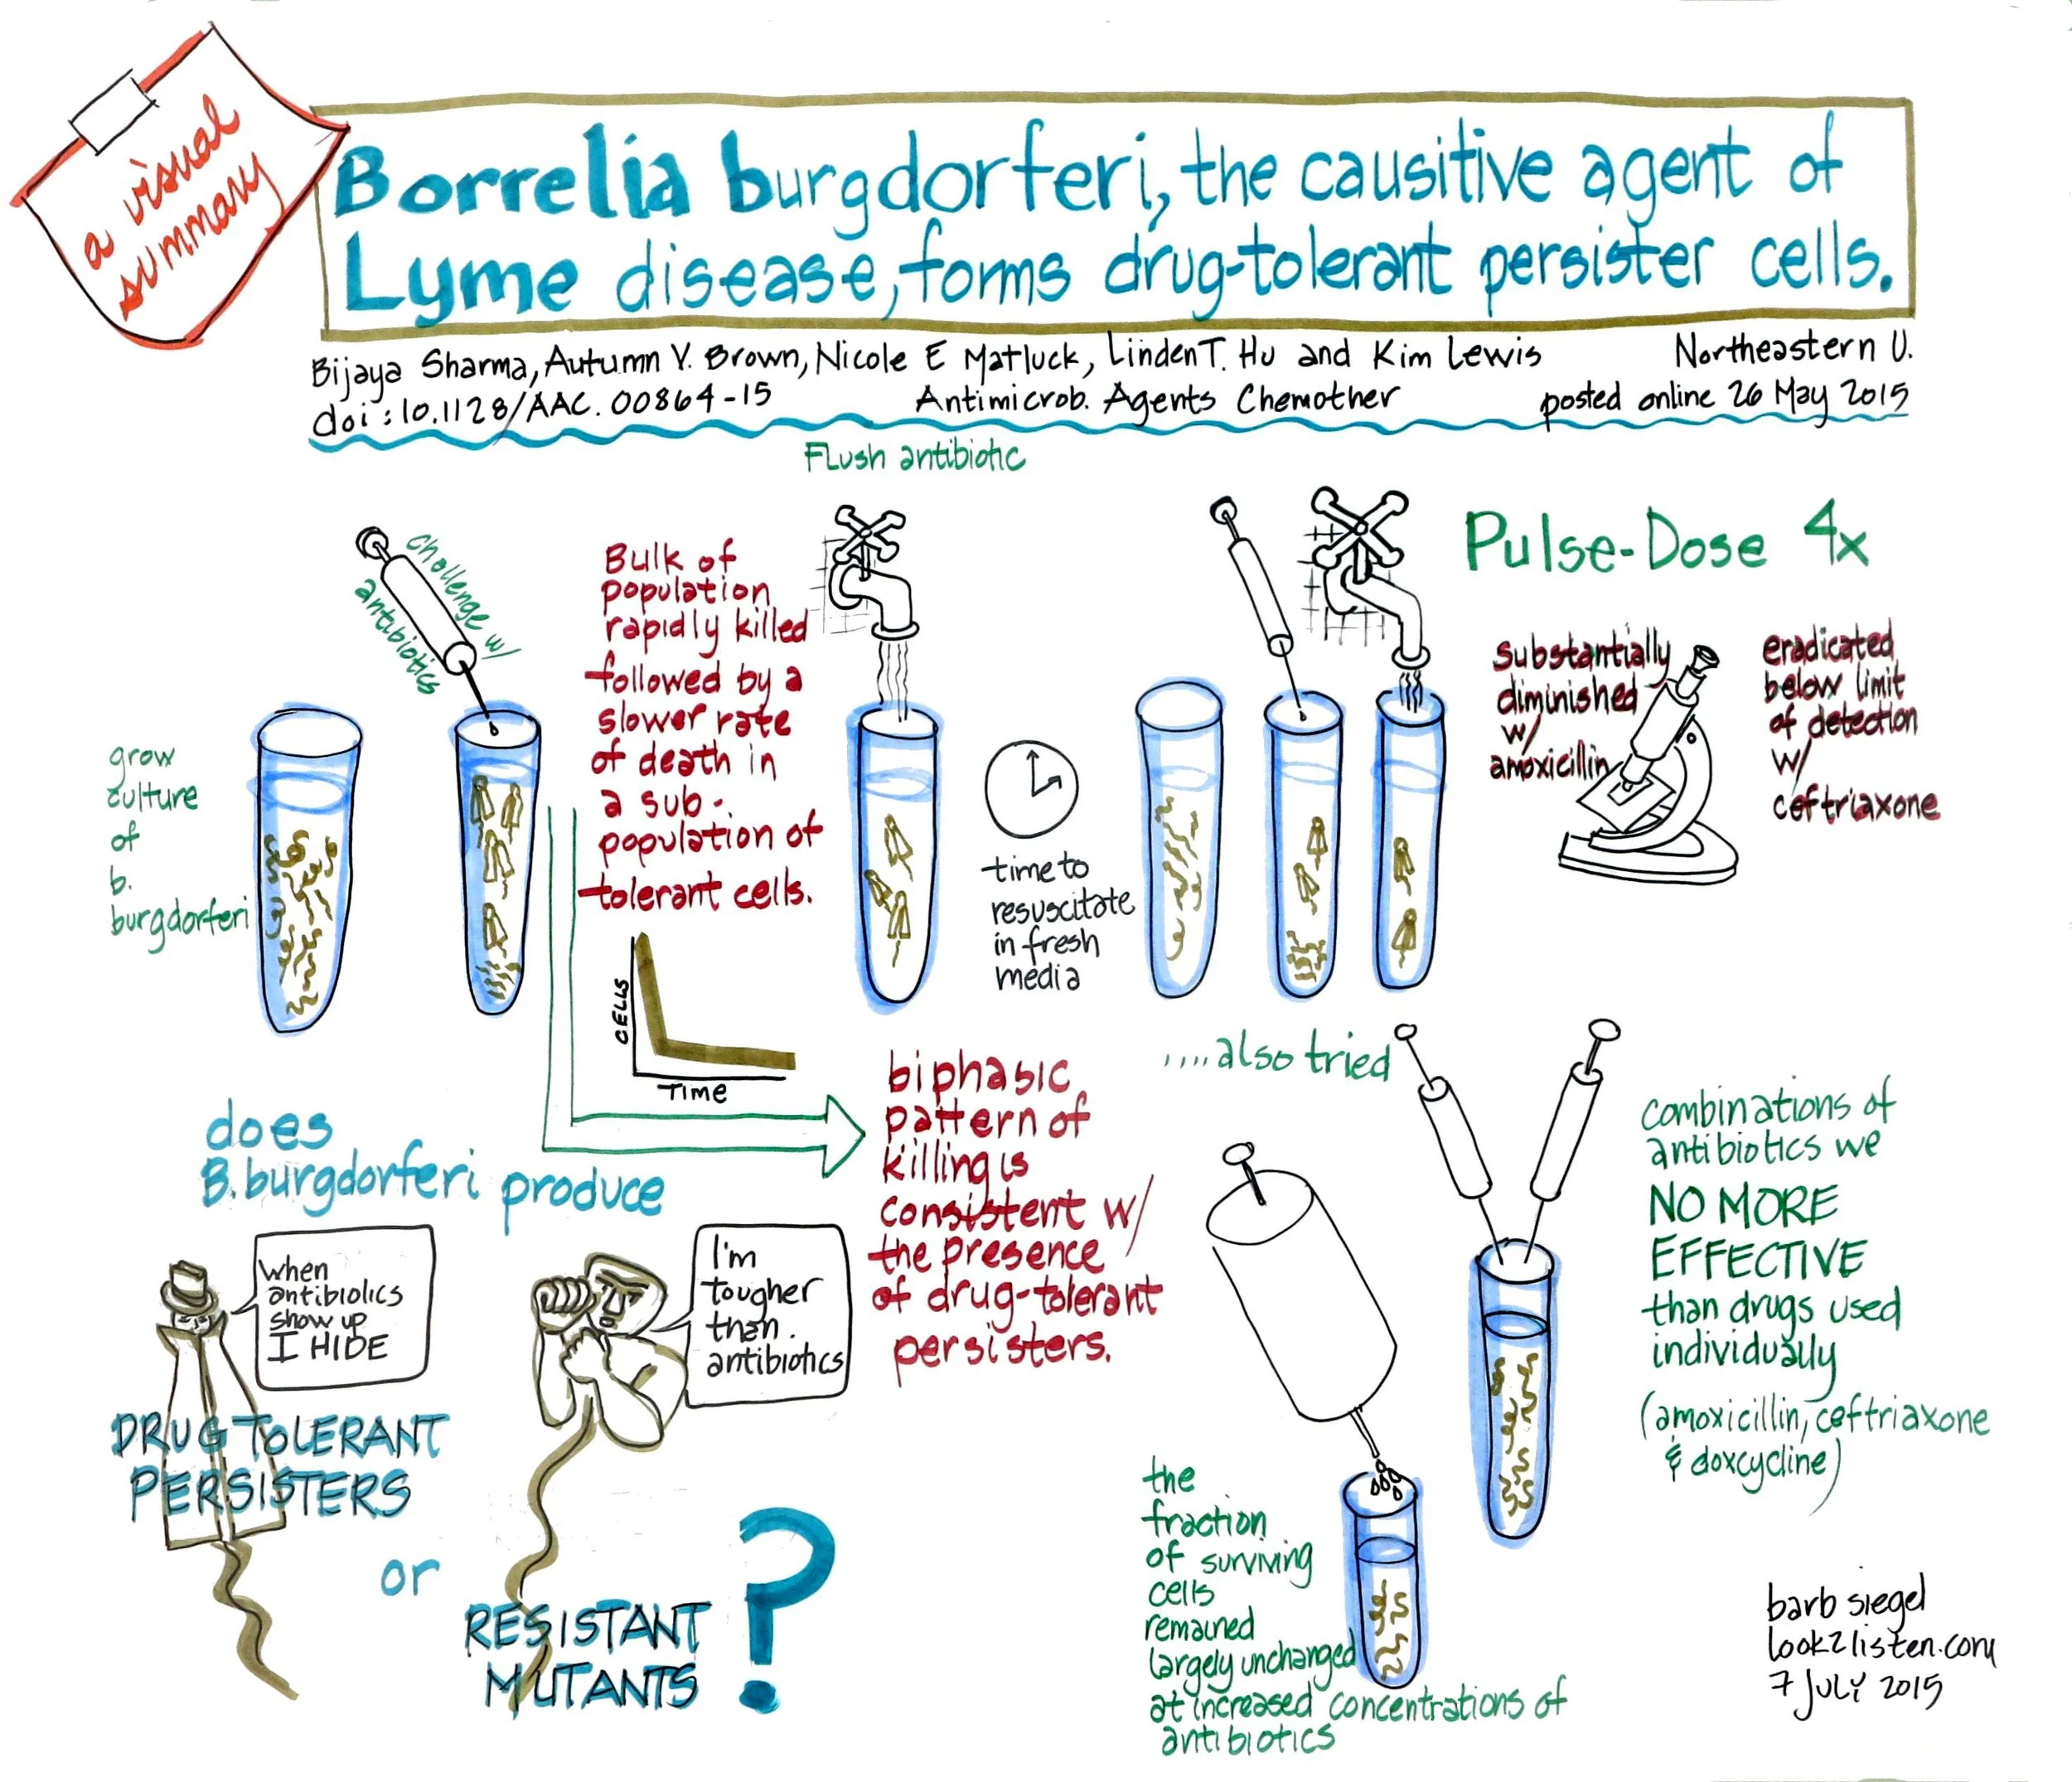 a visual
summary
Borrelia burgdorferi, the causitive agent of
Lyme disease, forms drug-tolerant persister cells.
Bijaya Sharma, Autumn V. Brown, Nicole E Matluck, Linden T. Hu and Kim Lewis
Northeastern U.
doi: 10.1128/AAC.00864-15
Antimicrob. Agents Chemother
posted online 26 May 2015
grow
culture
of
b.
burgdorferi
challenge w/
antibiotics
Bulk of
population
rapidly killed
followed by a
slower rate
of death in
a sub-
population of
tolerant cells.
CELLS
TIME
Flush antibiotic
time to
resuscitate
in fresh
media
Pulse-Dose 4x
substantially
diminished
w/
amoxicillin
eradicated
below limit
of detection
w/
ceftriaxone
does
B. burgdorferi produce
when
antibiotics
show up
I HIDE
DRUG TOLERANT
PERSISTERS
or
I'm
tougher
than
antibiotics
RESISTANT
MUTANTS
?
biphasic
pattern of
killing is
consistent w/
the presence
of drug-tolerant
persisters.
....also tried
the
fraction
of surviving
cells
remained
largely unchanged
at increased concentrations of
antibiotics
combinations of
antibiotics we
NO MORE
EFFECTIVE
than drugs used
individually
(amoxicillin, ceftriaxone
& doxcycline)
barb siegel
look2listen.com
7 July 2015